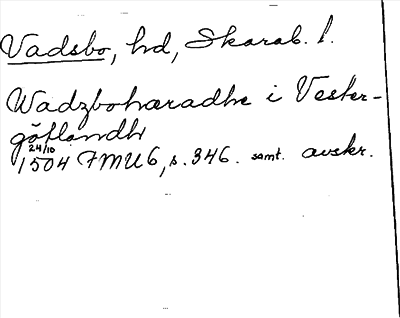 Vadsbo, hd, Skarab. l.
Wadzbohæradhe i Vester-
götlandh
24/10
1504 FMU 6, s. 346. samt. avskr.